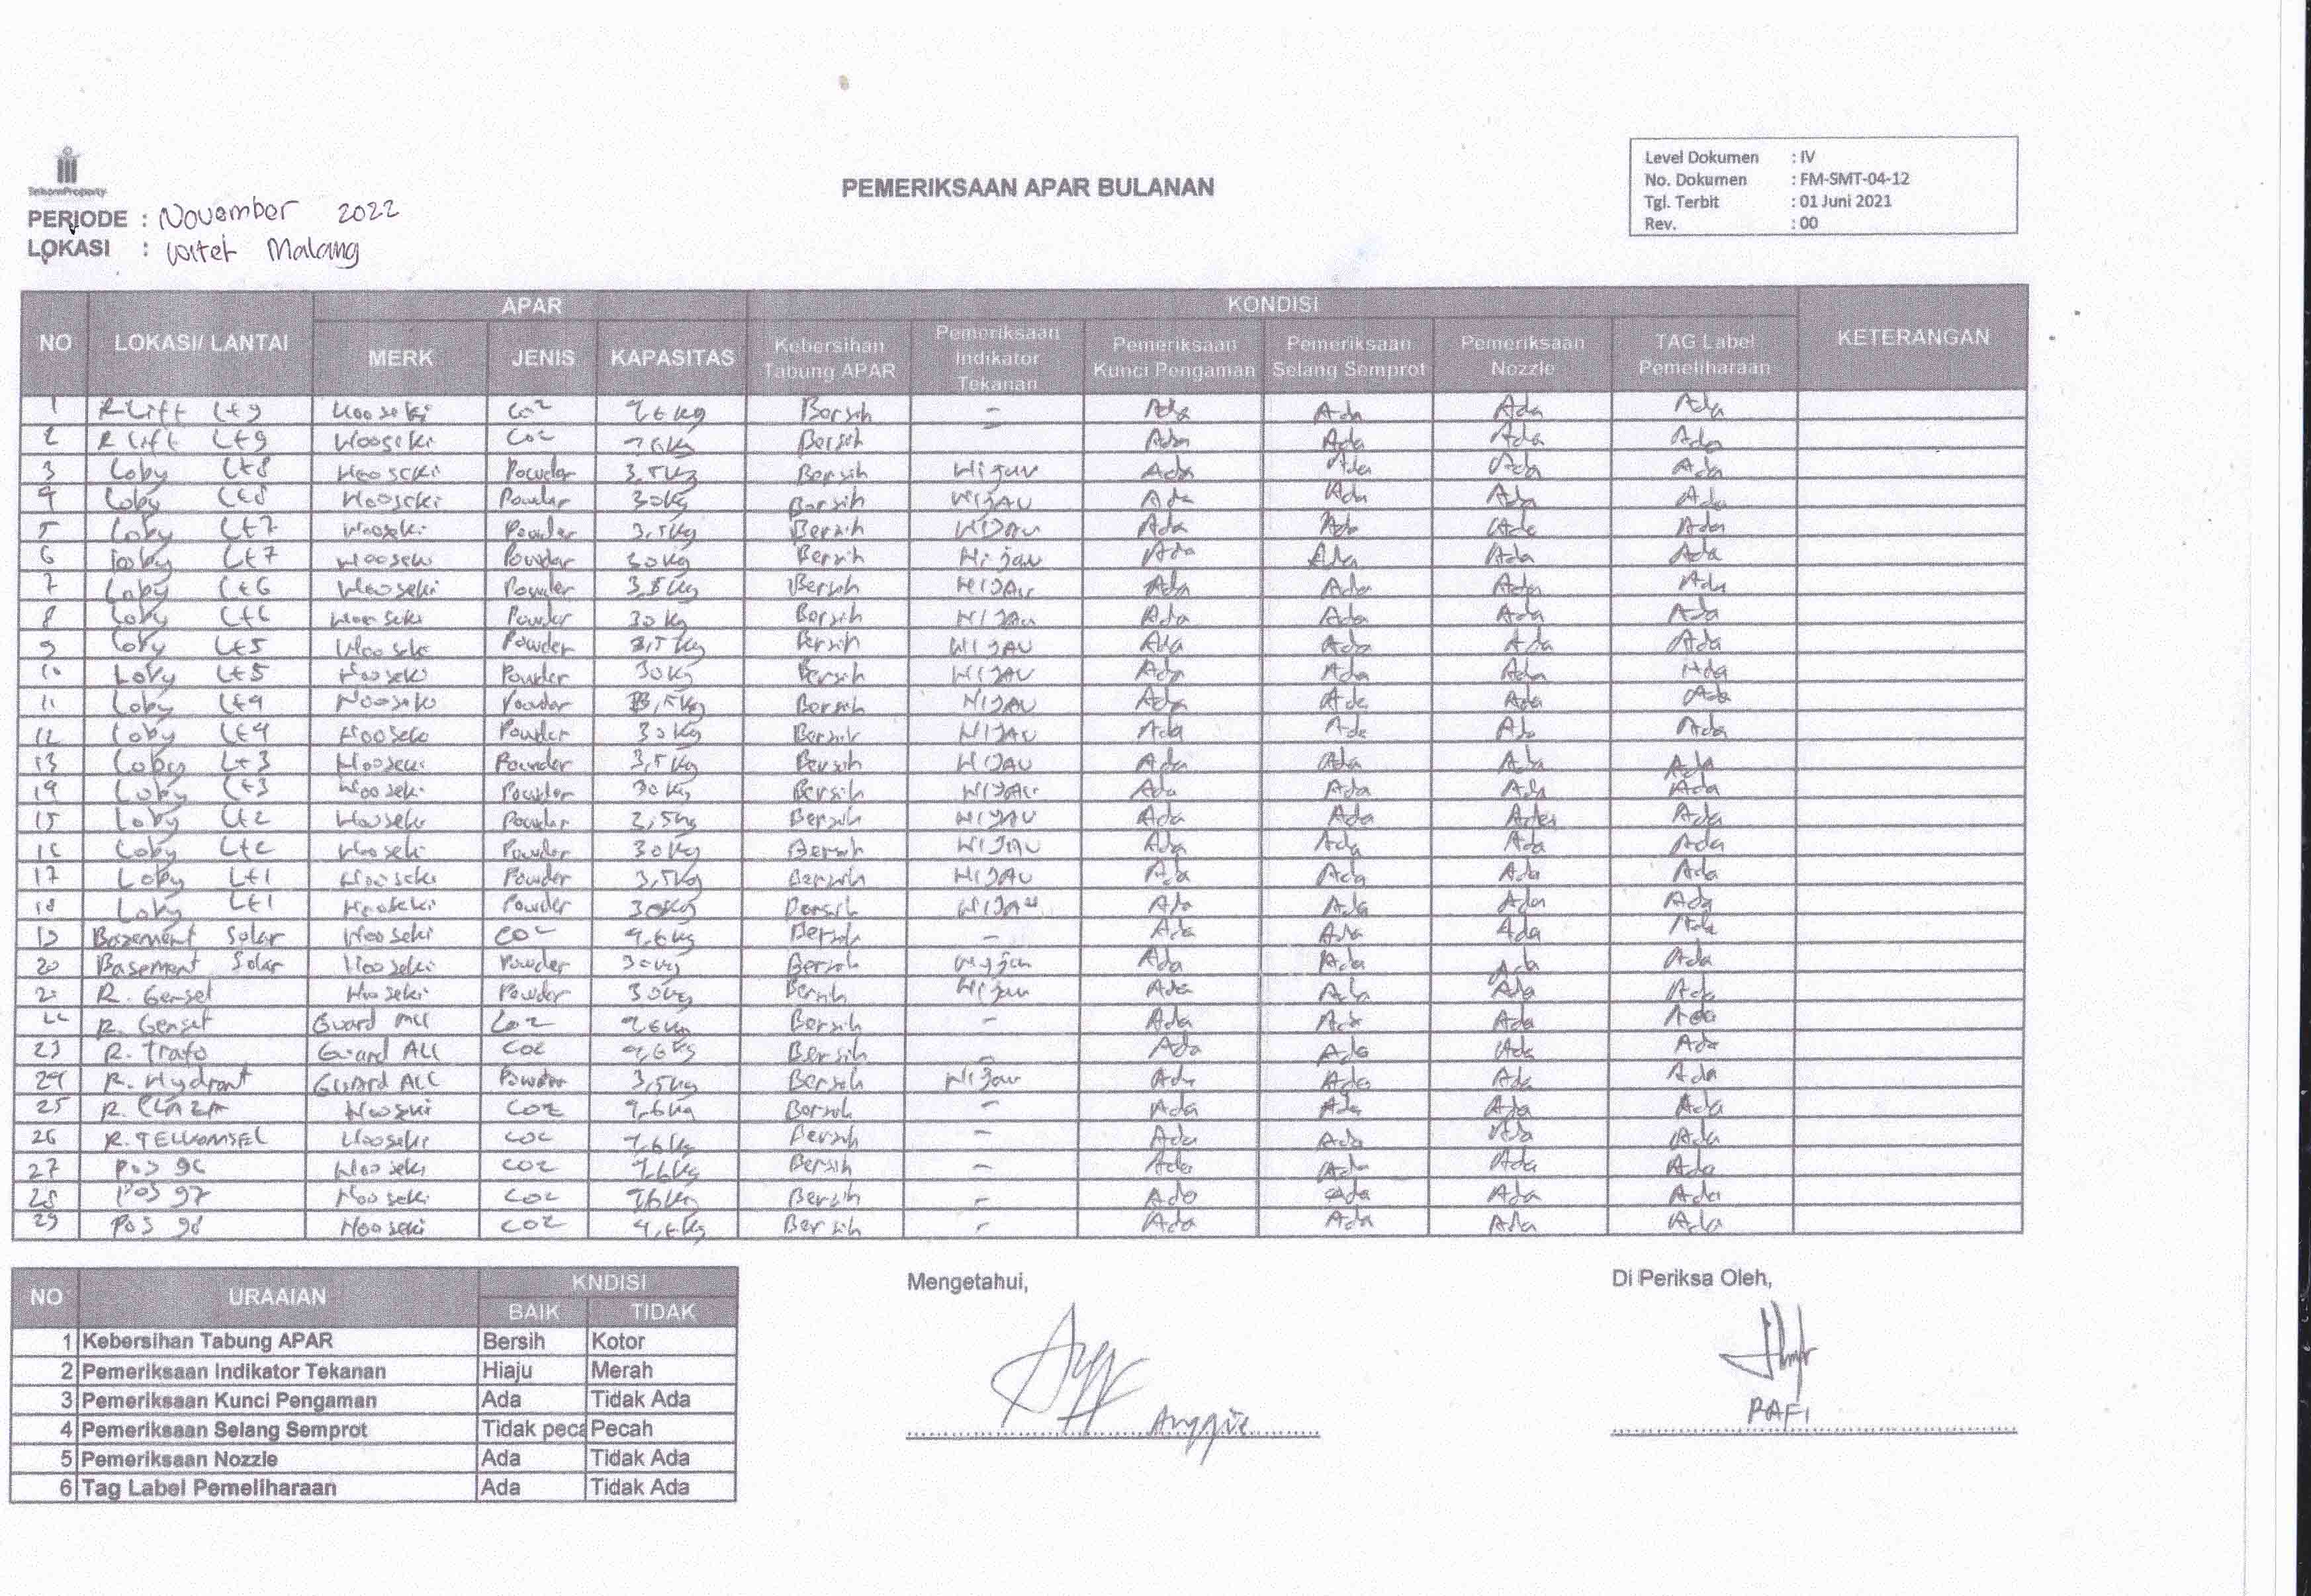 TelkomProperty
PEMERIKSAAN APAR BULANAN
Level Dokumen : IV
No. Dokumen : FM-SMT-04-12
Tgl. Terbit : 01 Juni 2021
Rev. : 00
PERIODE : November 2022
LOKASI : Witel Malang
NO LOKASI/ LANTAI APAR KONDISI KETERANGAN
MERK JENIS KAPASITAS Kebersihan Tabung APAR Pemeriksaan Indikator Tekanan Pemeriksaan Kunci Pengaman Pemeriksaan Selang Semprot Pemeriksaan Nozzle TAG Label Pemeliharaan
1 R Lift Lt 9 Hooseki CO2 9,6 Kg Bersih - Ada Ada Ada Ada
2 R Lift Lt 9 Hooseki CO2 9,6 Kg Bersih Ada Ada Ada Ada
3 Loby Lt 8 Hooseki Powder 3,5 Kg Bersih Hijau Ada Ada Ada Ada
4 Loby Lt 8 Hooseki Powder 30 Kg Bersih HIJAU Ada Ada Ada Ada
5 Loby Lt 7 Hooseki Powder 3,5 Kg Bersih HIJAU Ada Ada Ada Ada
6 Loby Lt 7 Hooseki Powder 30 Kg Bersih Hijau Ada Ada Ada Ada
7 Loby Lt 6 Hooseki Powder 3,5 Kg Bersih HIJAU Ada Ada Ada Ada
8 Loby Lt 6 Hooseki Powder 30 Kg Bersih HIJAU Ada Ada Ada Ada
9 Loby Lt 5 Hooseki Powder 3,5 Kg Bersih HIJAU Ada Ada Ada Ada
10 Loby Lt 5 Hooseki Powder 30 Kg Bersih HIJAU Ada Ada Ada Ada
11 Loby Lt 4 Hooseki Powder 3,5 Kg Bersih HIJAU Ada Ada Ada Ada
12 Loby Lt 4 Hooseki Powder 30 Kg Bersih HIJAU Ada Ada Ada Ada
13 Loby Lt 3 Hooseki Powder 3,5 Kg Bersih HIJAU Ada Ada Ada Ada
14 Loby Lt 3 Hooseki Powder 30 Kg Bersih HIJAU Ada Ada Ada Ada
15 Loby Lt 2 Hooseki Powder 3,5 Kg Bersih HIJAU Ada Ada Ada Ada
16 Loby Lt 2 Hooseki Powder 30 Kg Bersih HIJAU Ada Ada Ada Ada
17 Loby Lt 1 Hooseki Powder 3,5 Kg Bersih HIJAU Ada Ada Ada Ada
18 Loby Lt 1 Hooseki Powder 30 Kg Bersih HIJAU Ada Ada Ada Ada
19 Basement Solar Hooseki CO2 9,6 Kg Bersih - Ada Ada Ada Ada
20 Basement Solar Hooseki Powder 30 Kg Bersih Hijau Ada Ada Ada Ada
21 R. Genset Hooseki Powder 30 Kg Bersih Hijau Ada Ada Ada Ada
22 R. Genset Guard All CO2 9,6 Kg Bersih - Ada Ada Ada Ada
23 R. Trafo Guard ALL CO2 9,6 Kg Bersih - Ada Ada Ada Ada
24 R. Hydrant Guard ALL Powder 3,5 Kg Bersih Hijau Ada Ada Ada Ada
25 R. PLAZA Hooseki CO2 9,6 Kg Bersih - Ada Ada Ada Ada
26 R. TELKOMSEL Hooseki CO2 9,6 Kg Bersih - Ada Ada Ada Ada
27 Pos 96 Hooseki CO2 9,6 Kg Bersih - Ada Ada Ada Ada
28 Pos 97 Hooseki CO2 9,6 Kg Bersih - Ada Ada Ada Ada
29 Pos 98 Hooseki CO2 9,6 Kg Bersih - Ada Ada Ada Ada
NO URAAIAN KNDISI
BAIK TIDAK
1 Kebersihan Tabung APAR Bersih Kotor
2 Pemeriksaan Indikator Tekanan Hiaju Merah
3 Pemeriksaan Kunci Pengaman Ada Tidak Ada
4 Pemeriksaan Selang Semprot Tidak peca Pecah
5 Pemeriksaan Nozzle Ada Tidak Ada
6 Tag Label Pemeliharaan Ada Tidak Ada
Mengetahui,
Anggie
Di Periksa Oleh,
RAFI